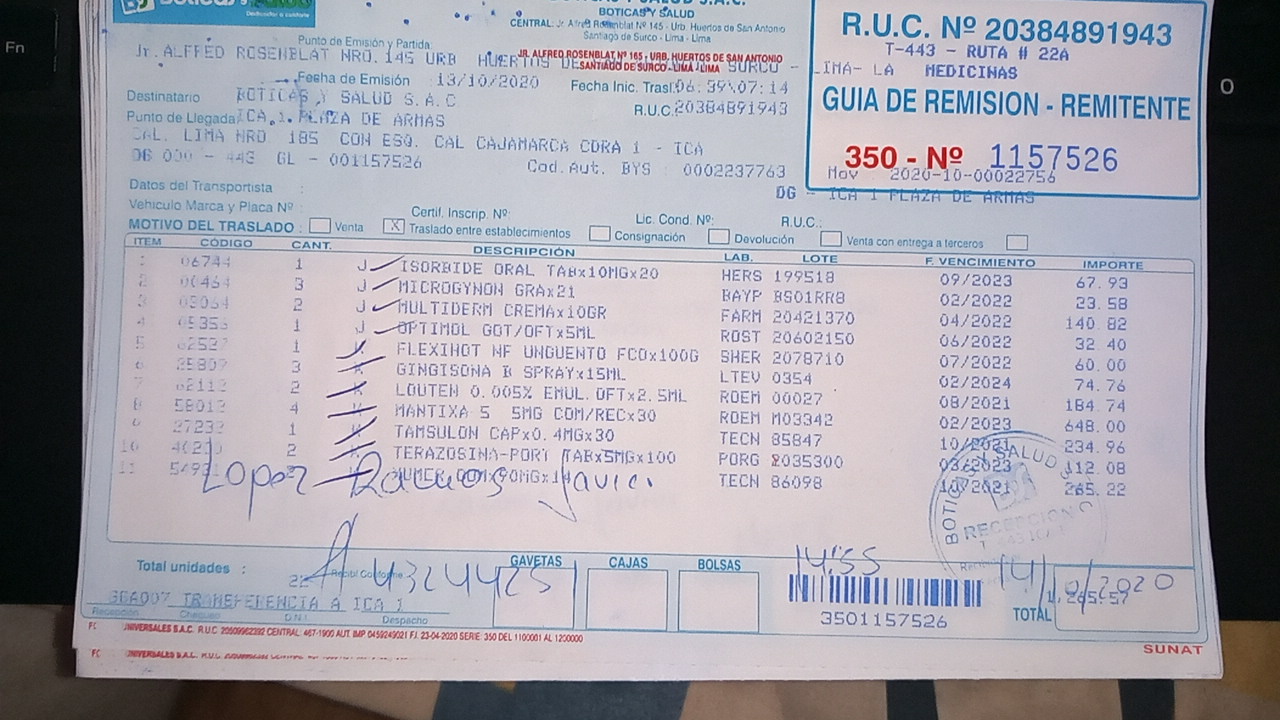 BOTICAS Y SALUD
CENTRAL: Jr. Alfred Rosenblat Nº 165 - Urb. Huertos de San Antonio
Santiago de Surco - Lima - Lima
R.U.C. Nº 20384891943
T-443 - RUTA # 22A
LIMA- LA MEDICINAS
GUIA DE REMISION - REMITENTE
350 - Nº 1157526
Mov 2020-10-00022756
DG - ICA 1 PLAZA DE ARMAS
Punto de Emisión y Partida:
Jr. ALFRED ROSENBLAT NRO. 145 URB HUERTOS DE SURCO -
JR. ALFROSENBLAT Nº 165 - URB. HUERTOS DE SAN ANTONIO
SANTIAGO DE SURCO - LIMA LIMA
Fecha de Emisión : 13/10/2020 Fecha Inic. Trasl. 06:39:07:14
Destinatario BOTICAS Y SALUD S.A.C R.U.C. 20384891943
Punto de Llegada ICA 1 PLAZA DE ARMAS
CAL. LIMA NRO 185 CON ESQ. CAL CAJAMARCA CDRA 1 - ICA
DG 000 - 443 GL - 001157526 Cod.Aut. BYS : 0002237763
Datos del Transportista :
Vehiculo Marca y Placa Nº : Certif. Inscrip. Nº: Lic. Cond. Nº: R.U.C.:
MOTIVO DEL TRASLADO : Venta X Traslado entre establecimientos Consignación Devolución Venta con entrega a terceros
ITEM CÓDIGO CANT. DESCRIPCIÓN LAB. LOTE F. VENCIMIENTO IMPORTE
1 06744 1 J ISORBIDE ORAL TABx10MGx20 HERS 199518 09/2023 67.93
2 00464 3 J MICROGYNON GRAx21 BAYP BS01RR8 02/2022 23.58
3 05064 2 J MULTIDERM CREMAx10GR FARM 20421370 04/2022 140.82
4 05353 1 J OPTIMOL GOT/OFTx5ML ROST 20602150 06/2022 32.40
5 62527 1 K FLEXIHOT NF UNGUENTO FCOx100G SHER 2078710 07/2022 60.00
6 35807 3 K GINGISONA B SPRAYx15ML LTEV 0354 02/2024 74.76
7 62113 2 K LOUTEN 0.005% EMUL.OFTx2.5ML ROEM 00027 08/2021 184.74
8 58013 4 K MANTIXA 5 5MG COM/RECx30 ROEM M03342 02/2023 648.00
9 27233 1 K TAMSULON CAPx0.4MGx30 TECN 85847 10/2021 234.96
10 2 K TERAZOSINA-PORT TABx5MGx100 PORG 2035300 03/2023 112.08
11 K TECN 86098 10/2021 265.22
Lopez Ramos Javier
BOTICAS Y SALUD
RECEPCION
Total unidades : 22 Recibí Conforme 43244251
GAVETAS CAJAS BOLSAS
14:55
14/10/2020
TRANSFERENCIA A ICA 1
Recepción Chequeo D.N.I. Despacho
3501157526
TOTAL
UNIVERSALES S.A.C. R.U.C 20509962392 CENTRAL: 467-1900 AUT. IMP 0459249021 F.I. 23-04-2020 SERIE: 350 DEL 1100001 AL 1200000
SUNAT
Fn